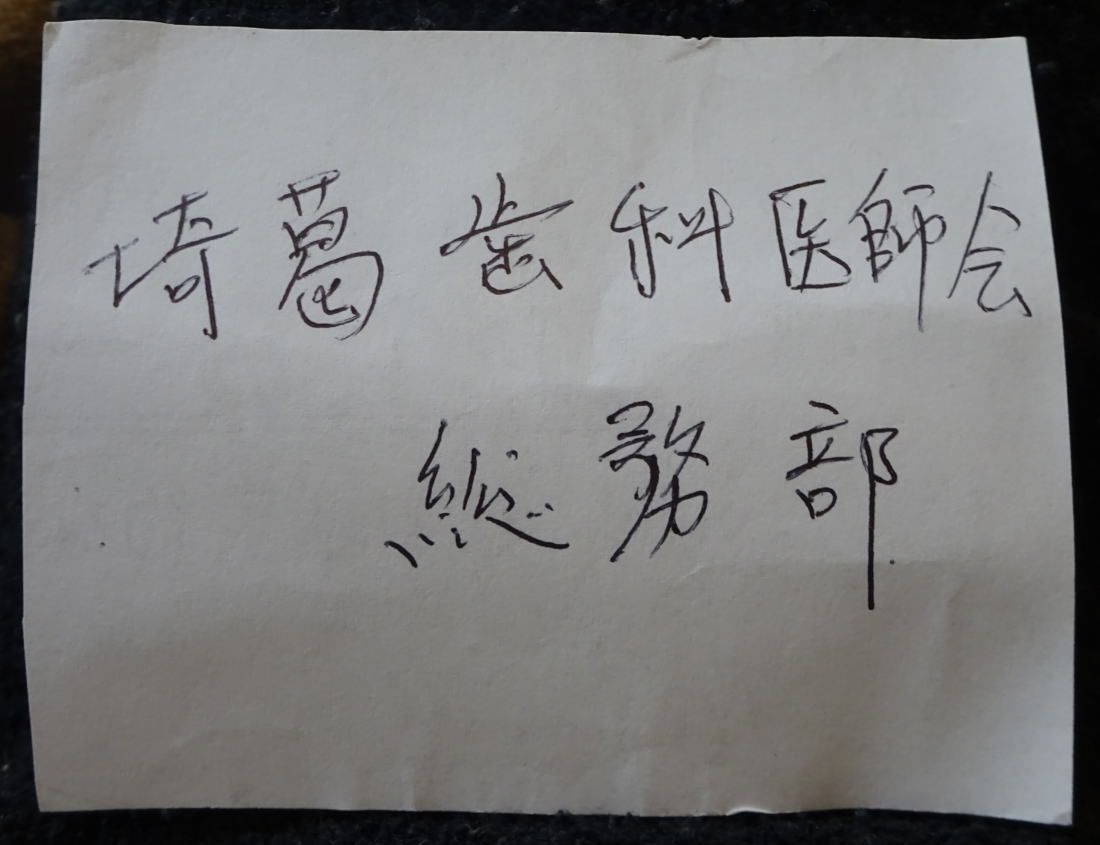 埼葛歯科医師会
総務部